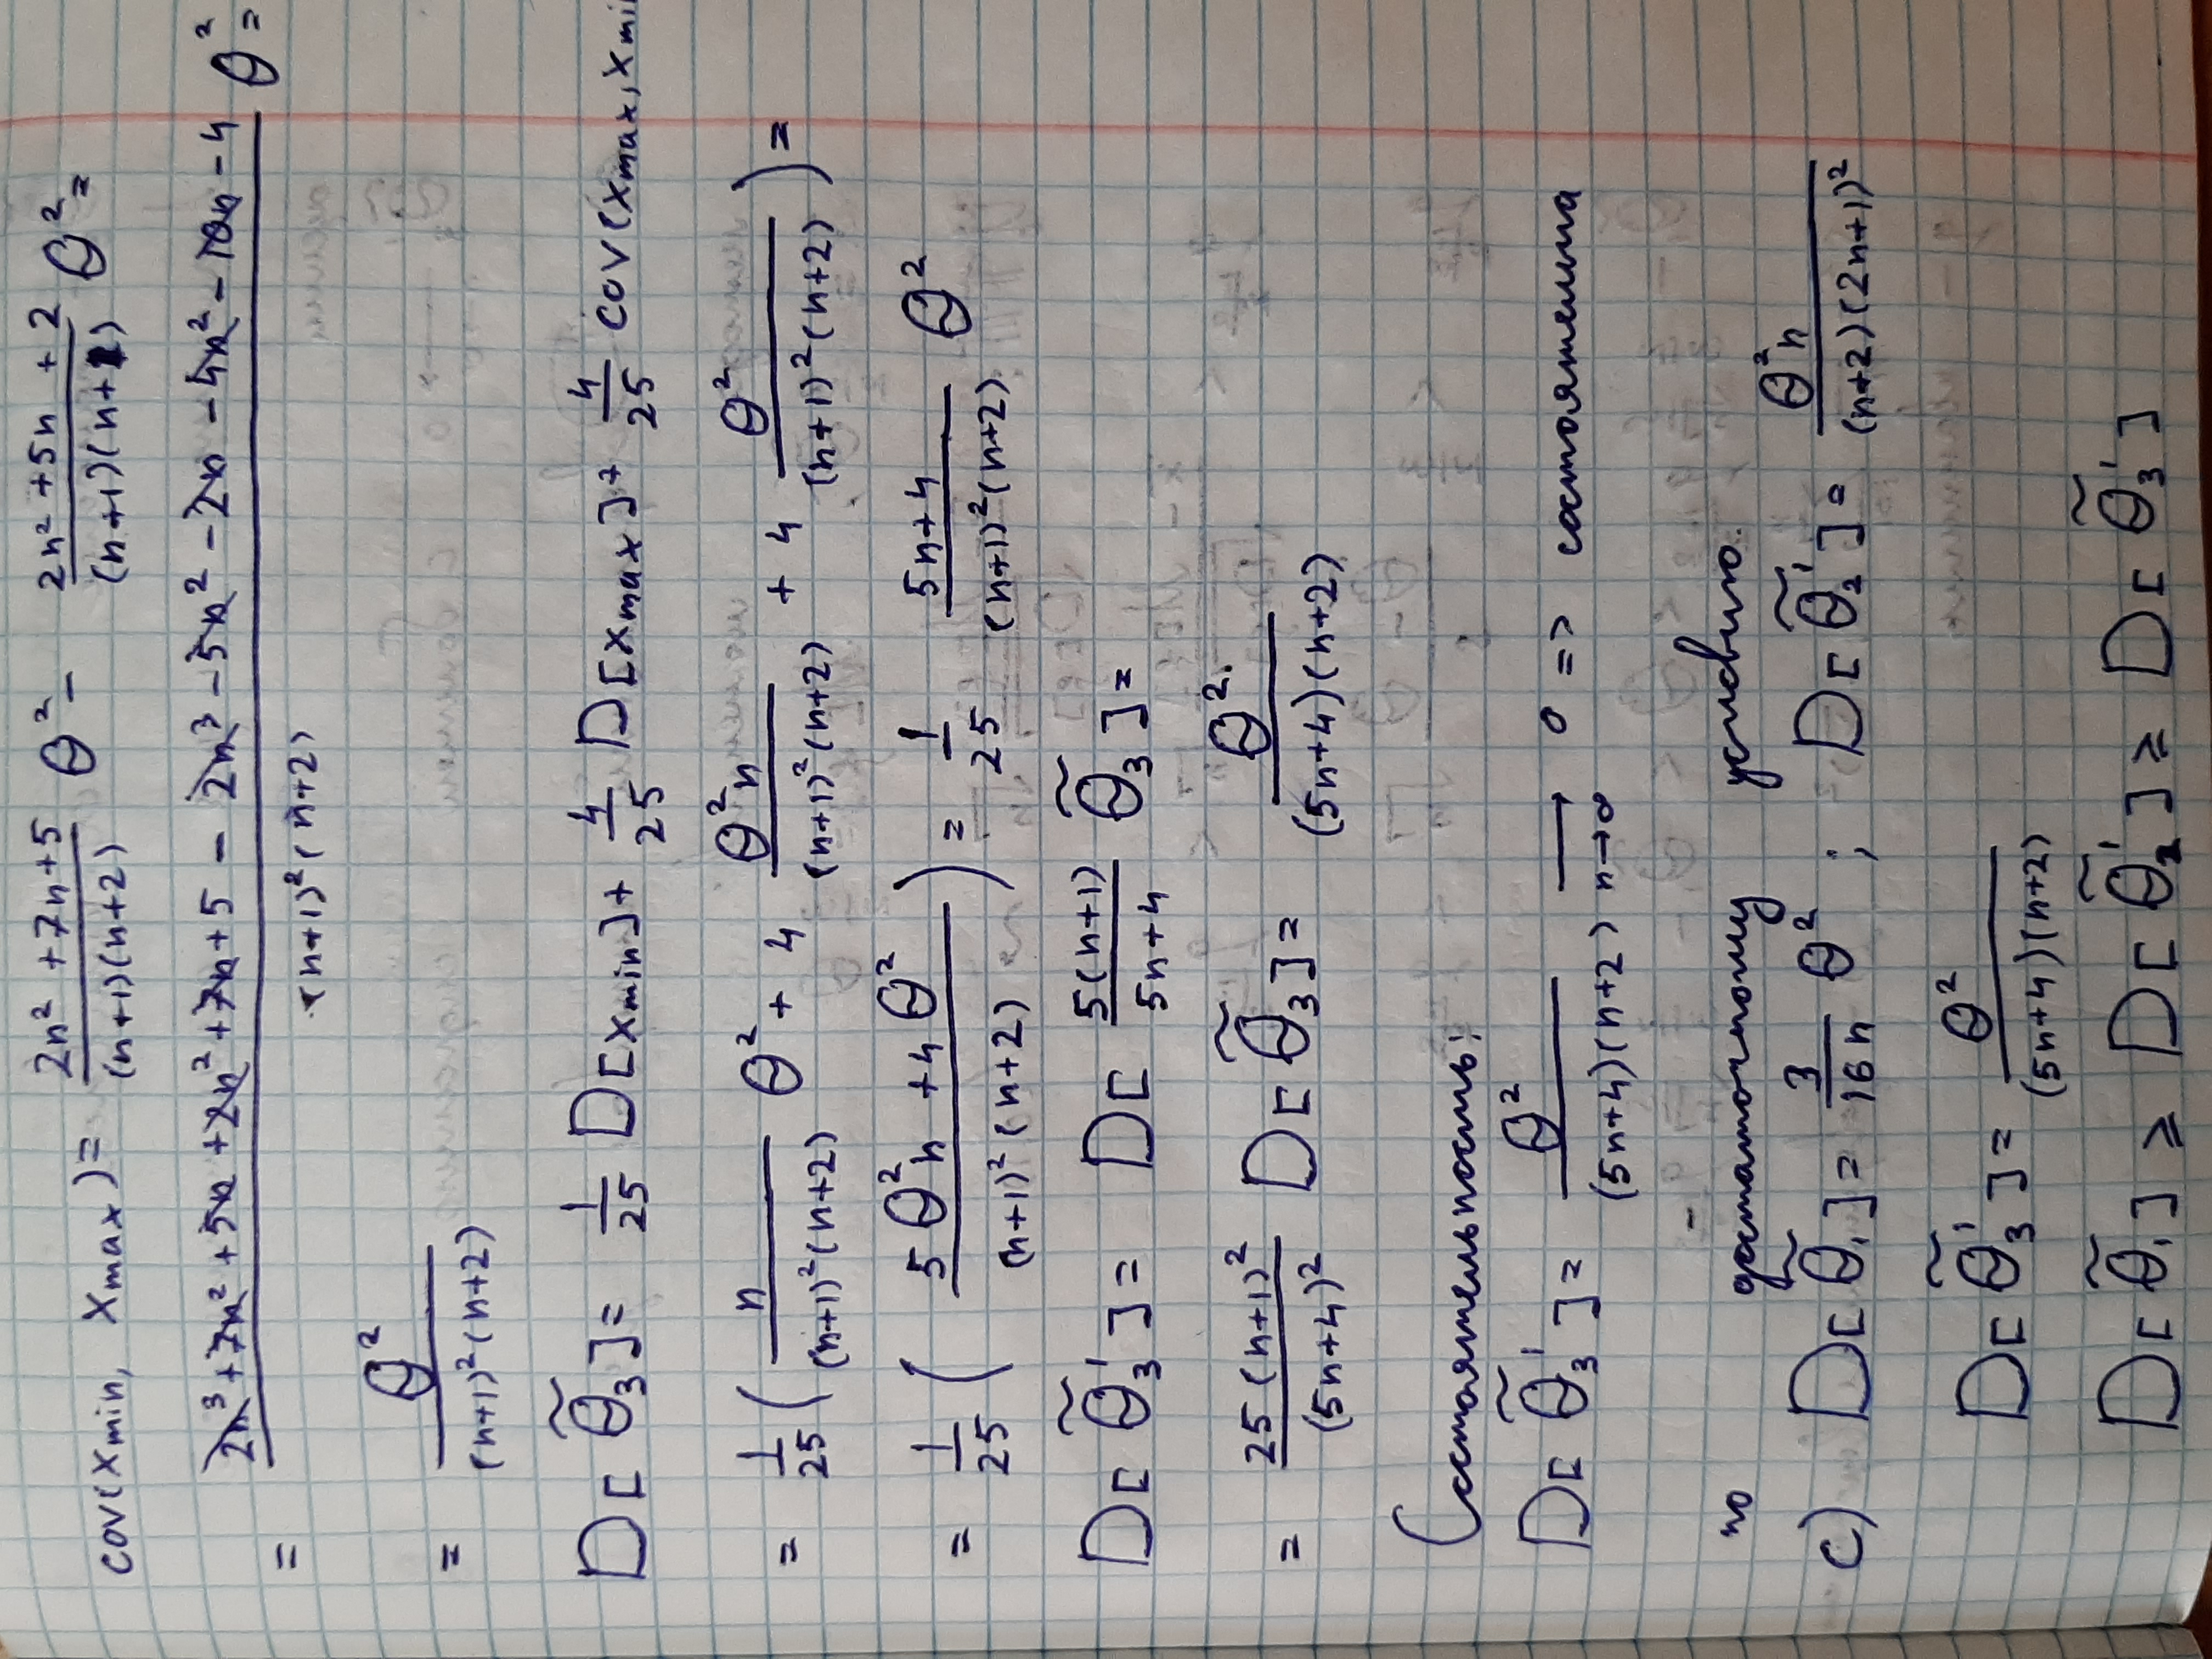 cov(x_min, x_max) = (2n² + 7n + 5)/((n+1)(n+2)) θ² − (2n² + 5n + 2)/((n+1)(n+1)) θ² =
= (2n³ + 7n² + 5n + 2n² + 7n + 5 − 2n³ − 5n² − 2n − 4n² − 10n − 4)/((n+1)²(n+2)) θ² =
= θ²/((n+1)²(n+2))
D[θ̃₃] = 1/25 D[x_min] + 4/25 D[x_max] + 4/25 cov(x_max, x_mi
= 1/25 ( n/((n+1)²(n+2)) θ² + 4 θ²n/((n+1)²(n+2)) + 4 θ²/((n+1)²(n+2)) ) =
= 1/25 ( (5θ²n + 4θ²)/((n+1)²(n+2)) ) = 1/25 (5n+4)/((n+1)²(n+2)) θ²
D[θ̃₃'] = D[ 5(n+1)/(5n+4) θ̃₃ ] =
= 25(n+1)²/(5n+4)² D[θ̃₃] = θ²/((5n+4)(n+2))
Состоятельность:
D[θ̃₃'] = θ²/((5n+4)(n+2)) →_(n→∞) 0 => состоятельна
по достаточному условию.
c) D[θ̃₁] = 3/(16n) θ² ; D[θ̃₂'] = θ²n/((n+2)(2n+1)²)
D[θ̃₃'] = θ²/((5n+4)(n+2))
D[θ̃₁] ⩾ D[θ̃₂'] ⩾ D[θ̃₃']